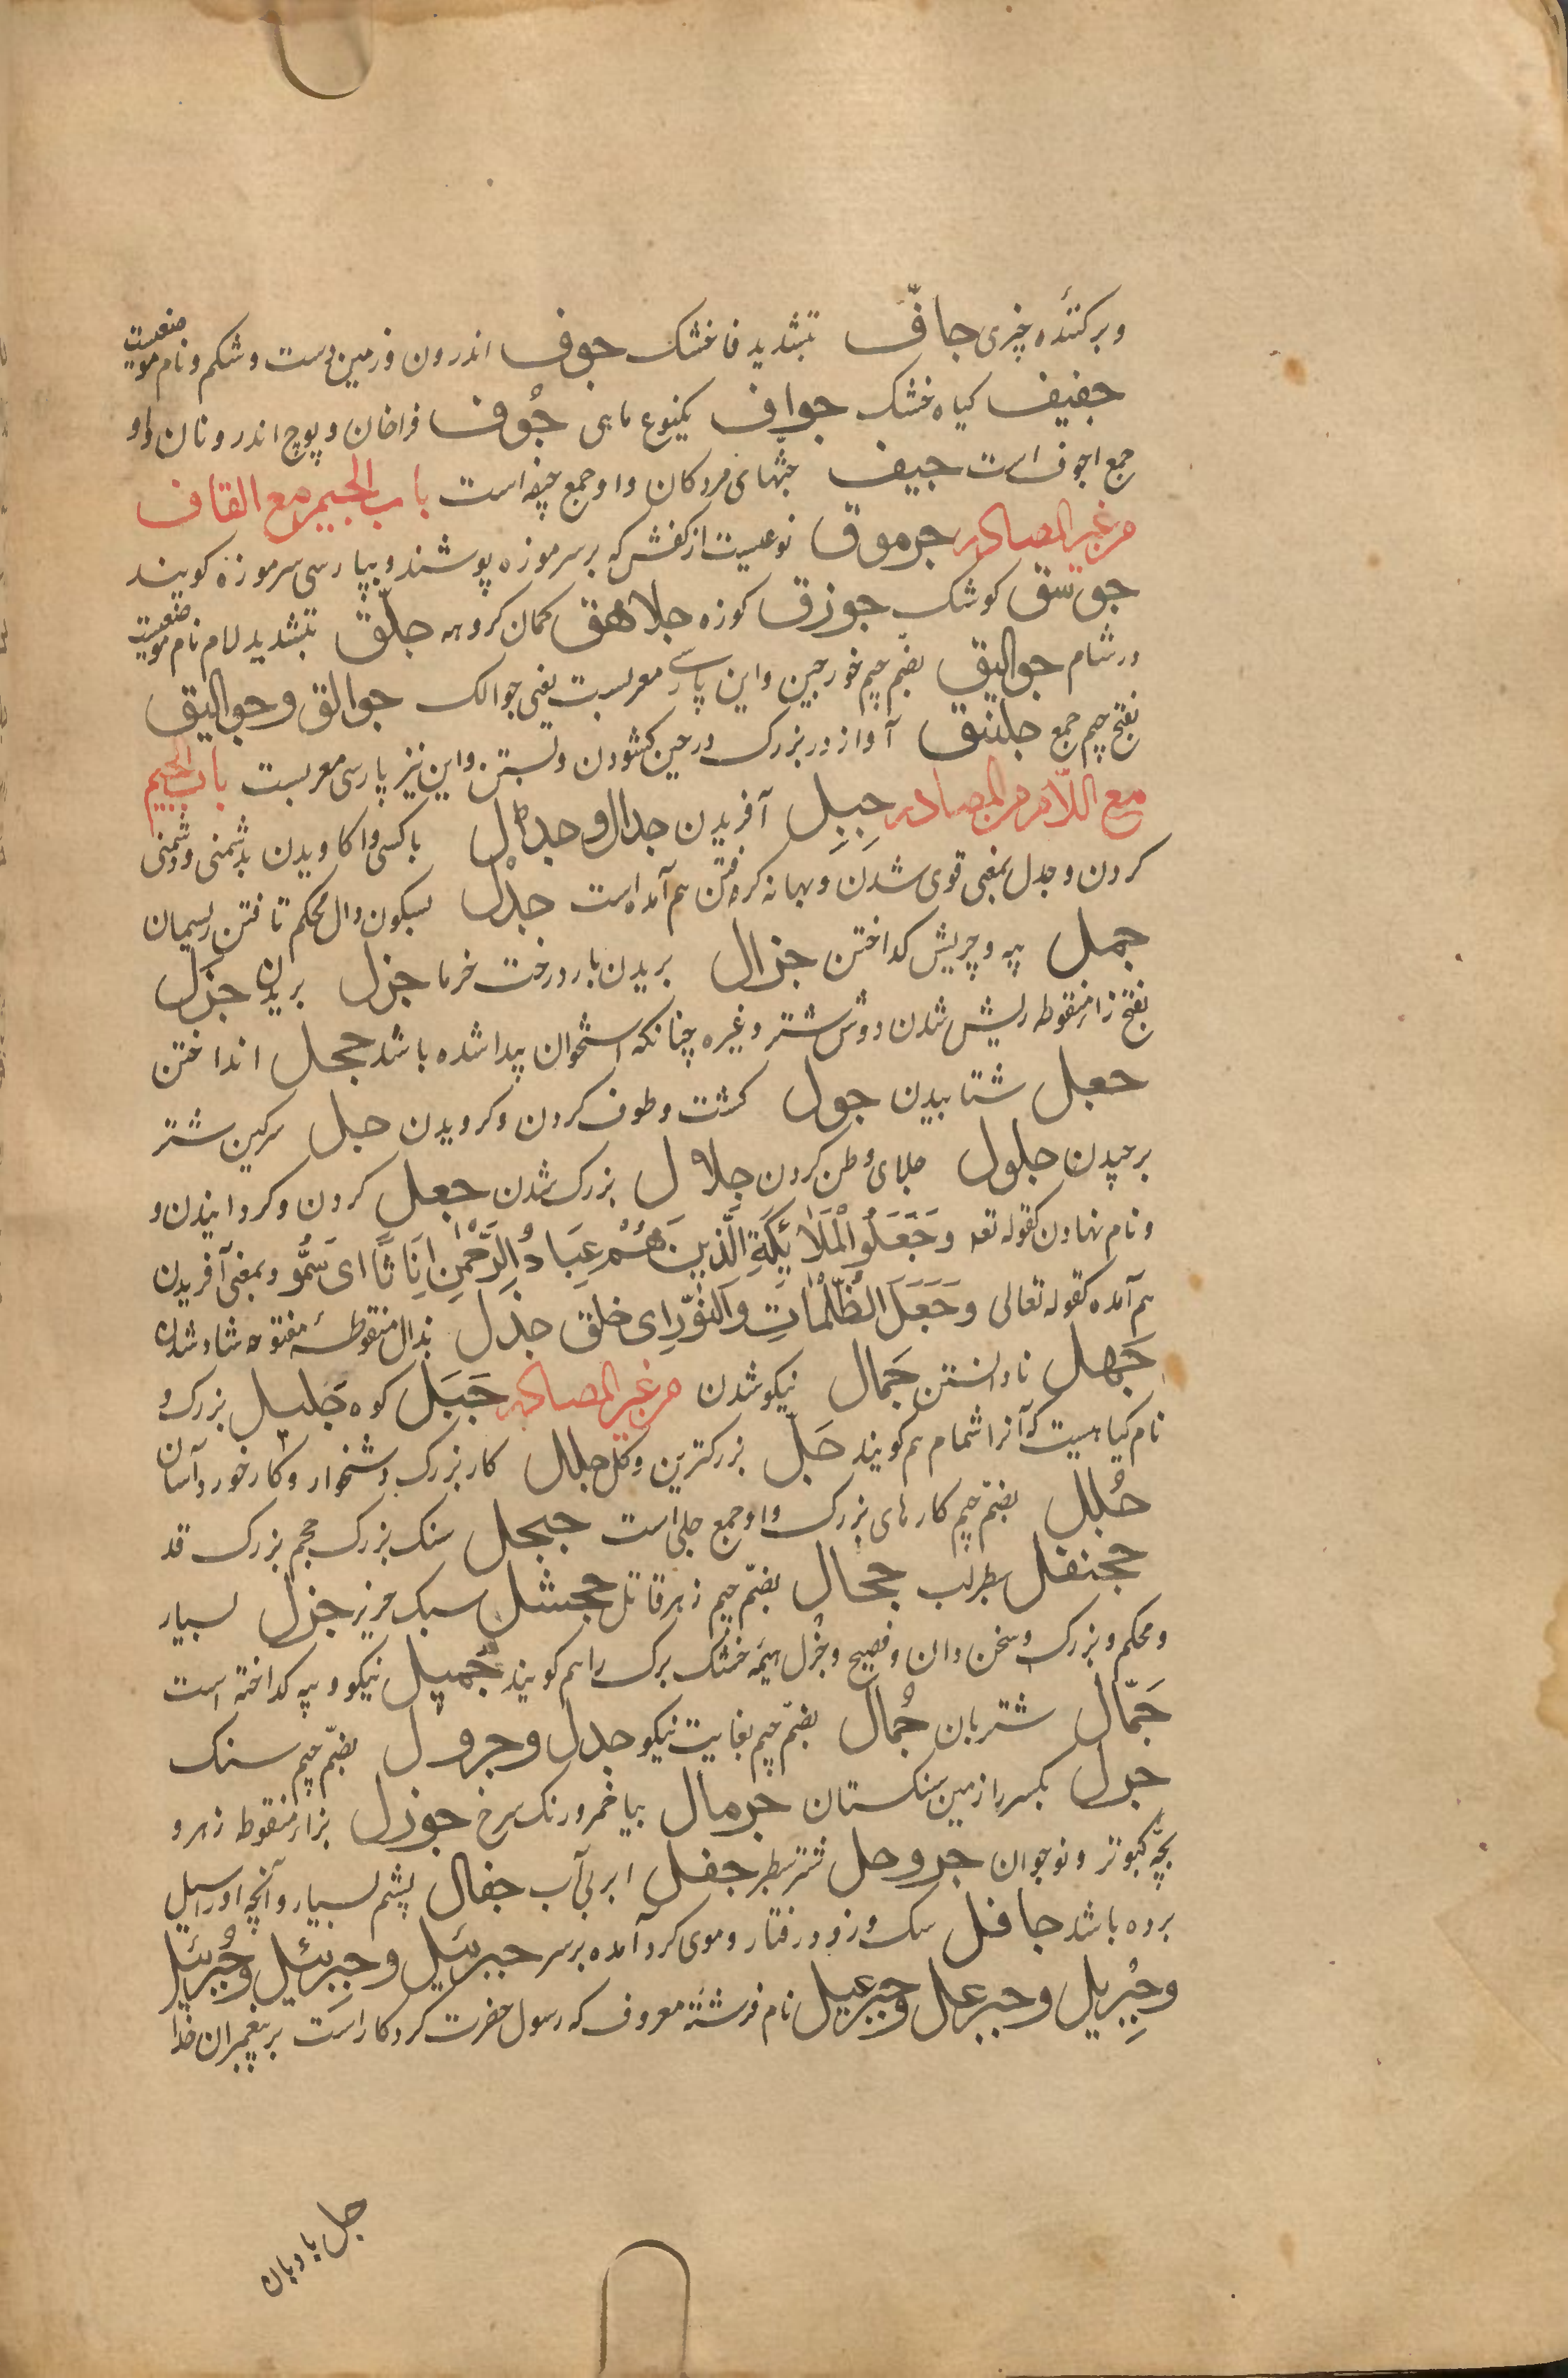 و برکننده چیزی جافّ بتشدید فا خشک جوف اندرون و زمین پست و شکم و نام موضعیست
جفیف کیاه خشک جواف یکنوع ماهی جُوف فراخان و پوچ اندرونان و او
جمع اجوف است جیف جثهای مردکان و او جمع جیفه است باب الجیم مع القاف
من غیر المصادر جرموق نوعیست از کفش که بر سر موزه پوشند و بپارسی سرموزه کویند
جوسق کوشک جوزق کوزه جلاهق کمان کروهه جلّق بتشدید لام نام موضعیست
در شام جوالیق بضم جیم خورجین و این پارسی معربست یعنی جوالک جوالق و جوالیق
بفتح جیم جمع جلنبق آواز در بزرک در حین کشودن و بستن و این نیز پارسی معربست باب الجیم
مع اللام من المصادر جِبِل آفریدن جدال و جدل با کسی واکاویدن بدشمنی و دشمنی
کردن و جدل بمعنی قوی شدن و بهانه کرفتن هم آمده است جدْل بسکون دال محکم تافتن ریسمان
جمل پیه و چربش کداختن جزال بریدن بار درخت خرما جزل بریدن جزَل
بفتح زاء منقوطه ریش شدن دوش شتر و غیره چنانکه استخوان پیدا شده باشد جحل انداختن
جعبل شتابیدن جول کشت و طوف کردن و کرویدن جل سرکین شتر
برچیدن جلول جلای وطن کردن جلال بزرک شدن جعل کردن و کردانیدن و
و نام نهادن کقوله تعه وَجَعَلُوا الْمَلَائِكَةَ الَّذِينَ هُمْ عِبَادُ الرَّحْمٰنِ اِنَاثًا ای سَمُّو و بمعنی آفریدن
هم آمده کقوله تعالی وَجَعَلَ الظُّلُمَاتِ وَالنُّوْرَ ای خلق جذل بذال منقوطهٔ مفتوحه شاد شدن
جَهل نادانستن جَمال نیکو شدن من غیر المصادر جَبَل کوه جَلیل بزرک و
نام کیاهیست که آنرا شمام هم کویند جَلّ بزرکترین و کل جلال کار بزرک و دشخوار و کار خورد و آسان
جُلل بضم جیم کارهای بزرک و او جمع جلی است جیحل سنک بزرک حجم بزرک قد
جحنفل سطبر لب جحال بضم جیم زهر قاتل جحشل سبک خیز جزل بسیار
و محکم و بزرک و سخن دان و فصیح و جزل هیمه خشک بزرک را هم کویند جَمیل نیکو و پیه کداخته است
جَمّال شتربان جُمال بضم جیم بغایت نیکو جدل و جرول بضم جیم سنک
جرل بکسر را زمین سنکستان جرمال بیا خمر و رنک سرخ جوزل بزاء منقوطه زهر و
بچّه کبوتر و نوجوان جروحل شتر سطبر جفل ابر بی آب جفال پشم بسیار و آنچه او را سیل
برده باشد جافل سبک و زود رفتار و موی کرد آمده بر سر جبرئیل و جبرئیل و جُبرئیل
و جِبْریل و جبرعل و جبرعیل نام فرشتهٔ معروف که رسول حضرت کردکار است بر پیغمبران خدا
جل بادبان